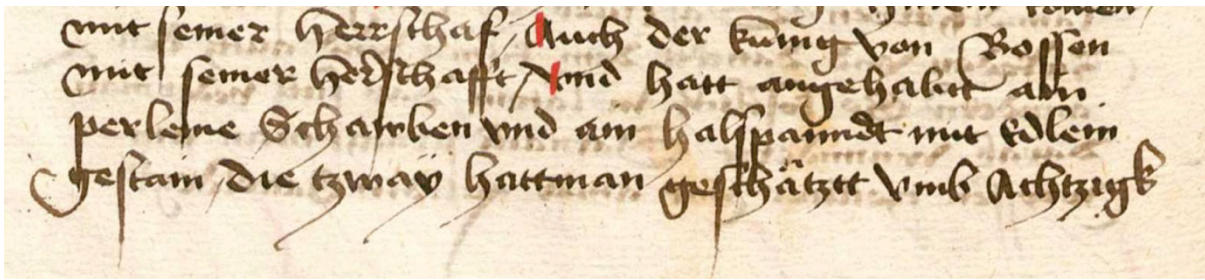 mit seiner herrschaf, Auch der kúnig von Bossen
mit seiner herschafft, vnd hatt angehabtt ain
perleine Schauben vnd ain halspanndt mit Edlem
gestain, die tzwaÿ hattman geschätztt vmb Achtzigk